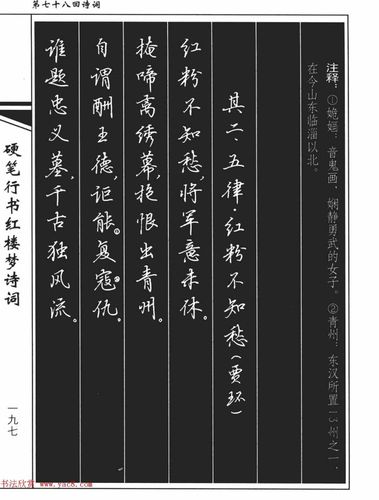 第七十八回诗词
注释：①姽婳：音鬼画，娴静勇武的女子。②青州：东汉所置13州之一，
在今山东临淄以北。
其二、五律·红粉不知愁（贾环）
红粉不知愁，将军意未休。
掩啼离绣幕，抱恨出青州。
自谓酬王德，讵能复寇仇。
谁题忠义墓，千古独风流。
硬笔行书红楼梦诗词
一九七
书法欣赏 www.yac8.com